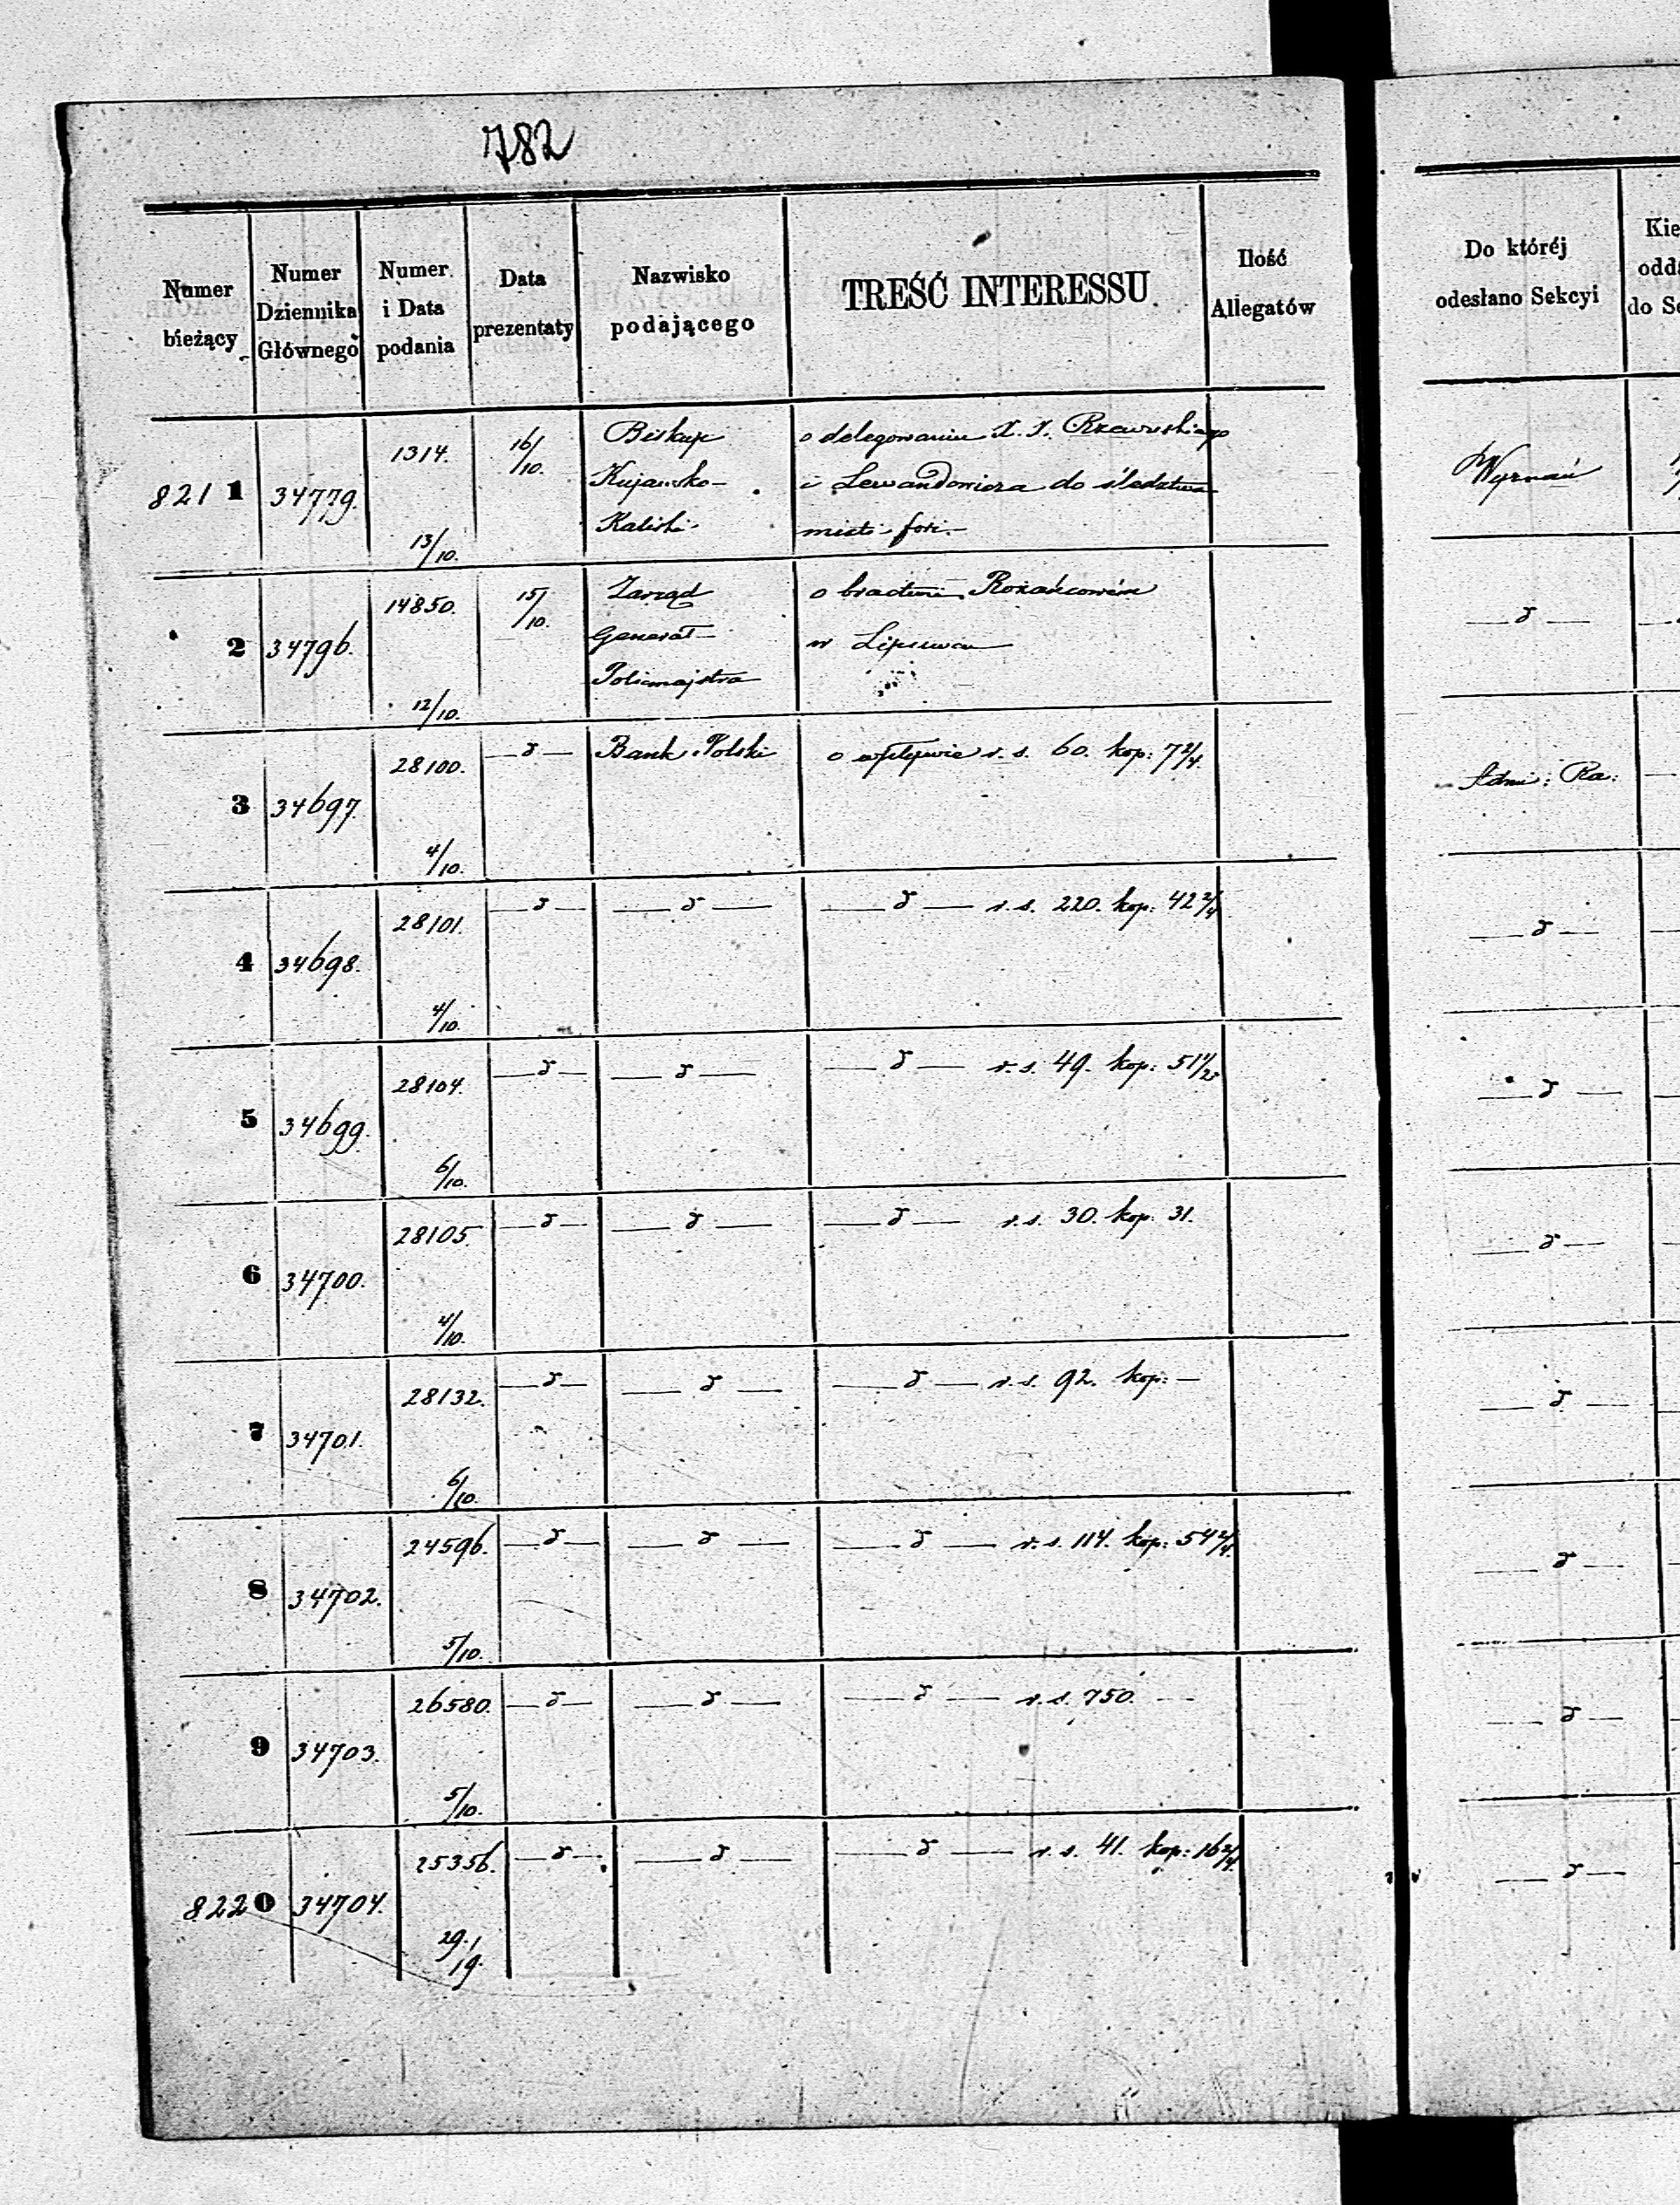 782
Numer bieżący
Numer Dziennika Głównego
Numer i Data podania
Data prezentaty
Nazwisko podającego
TREŚĆ INTERESSU
Ilość Allegatów
Do któréj odesłano Sekcyi
Kie
odda
do Se
8211 34779. 1314. 13/10. 16/10. Biskup o delegowaniu X. X. Rzewuskiego Wyznań
Kujawsko- i Lewandowicza do śledztwa
Kaliski misti-fori.-
2 34796. 14850. 12/10. 15/10. Zarząd o bractwie Rożańcowém — d —
Generał- w Lipsku
Policmajstra
3 34697. 28100. 4/10. — d — Bank Polski o wpływie r. s. 60. kop: 7 2/4. Adm: Ra:
4 34698. 28101. 4/10. — d — — d — — d — r. s. 220. kop: 42 2/4 — d —
5 34699. 28104. 6/10. — d — — d — — d — r. s. 49. kop: 51 — d —
6 34700. 28105. 4/10. — d — — d — — d — r. s. 30. kop. 31. — d —
7 34701. 28132. 6/10. — d — — d — — d — r. s. 92. kop: — — d —
8 34702. 24596. 5/10. — d — — d — — d — r. s. 114. kop: 54 2/4. — d —
9 34703. 26580. 5/10. — d — — d — — d — r. s. 750. — — d —
8220 34704. 25356. 29./19. — d — — d — — d — r. s. 41. kop: 16 2/4. — d —